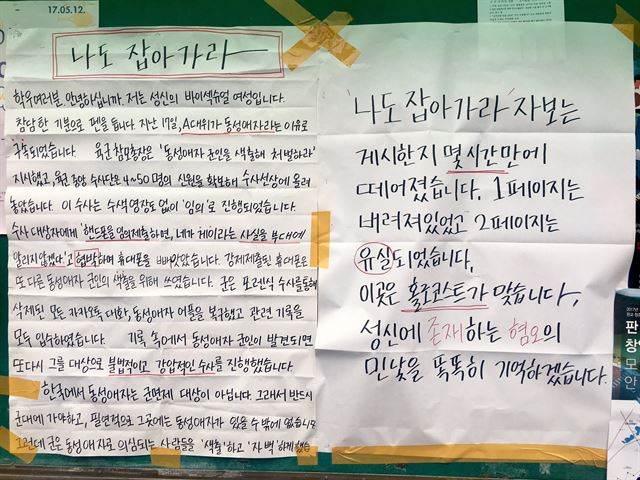 17.05.12.
나도 잡아가라
학우여러분, 안녕하십니까. 저는 성신의 바이섹슈얼 여성입니다.
참담한 기분으로 펜을 듭니다. 지난 17일, A대위가 동성애자라는 이유로
구속되었습니다. 육군참모총장은 '동성애자 군인을 색출해 처벌하라'
지시했고, 육군 중앙 수사단은 4~50명의 신원을 확보해 수사선상에 올려
놓았습니다. 이 수사는 수색영장도 없이 '임의'로 진행되었습니다.
수사 대상자에게 '핸드폰을 임의제출하면, 네가 게이라는 사실을 부대에
알리지 않겠다'고 협박하며 휴대폰을 빼앗았습니다. 강제제출된 휴대폰은
또 다른 동성애자 군인의 색출을 위해 쓰였습니다. 군은 포렌식 수사를 통해
삭제된 모든 카카오톡 대화, 동성애자 어플을 복구했고 관련 기록을
모두 입수하였습니다. 기록 속에서 동성애자 군인이 발견되면
또다시 그를 대상으로 불법적이고 강압적인 수사를 진행했습니다.
한국에서 동성애자는 군면제 대상이 아닙니다. 그래서 반드시
군대에 가야하고, 필연적으로 그곳에는 동성애자가 있을 수 밖에 없습니다.
그런데 군은 동성애자로 의심되는 사람들을 '색출'하고 '자백'하게 했습
'나도 잡아가라' 자보는
게시한지 몇시간만에
떼어졌습니다. 1페이지는
버려져있었고 2페이지는
유실되었습니다.
이곳은 홀로코스트가 맞습니다.
성신에 존재하는 혐오의
민낯을 똑똑히 기억하겠습니다.
판
창
모
안